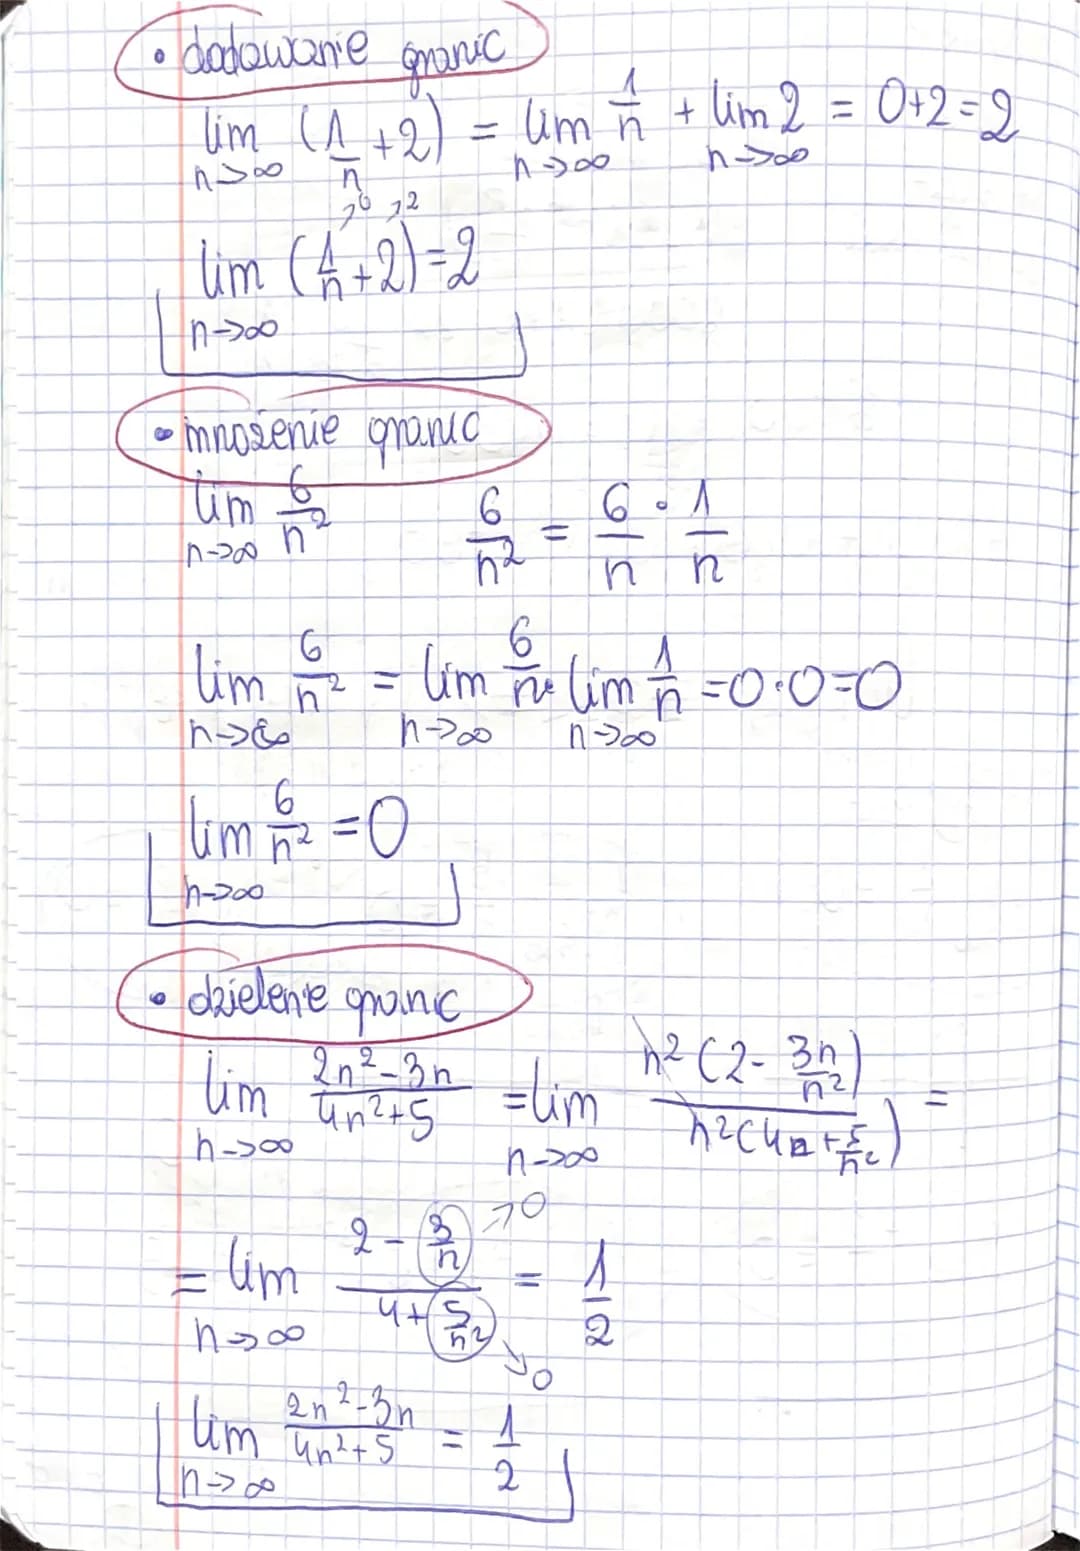 • dodawanie granic
lim n→∞ (1/n + 2) = lim n→∞ 1/n + lim n→∞ 2 = 0+2=2
lim n→∞ (1/n →0 + 2 →2) = 2
• mnożenie granic
lim n→∞ 6/n² 6/n² = 6/n · 1/n
lim n→∞ 6/n² = lim n→∞ 6/n · lim n→∞ 1/n = 0·0=0
lim n→∞ 6/n² = 0
• dzielenie granic
lim n→∞ (2n²-3n)/(4n²+5) = lim n→∞ n²(2 - 3n/n²)/n²(4 + 5/n²) =
= lim n→∞ (2 - 3/n →0)/(4 + 5/n² →0) = 1/2
lim n→∞ (2n²-3n)/(4n²+5) = 1/2